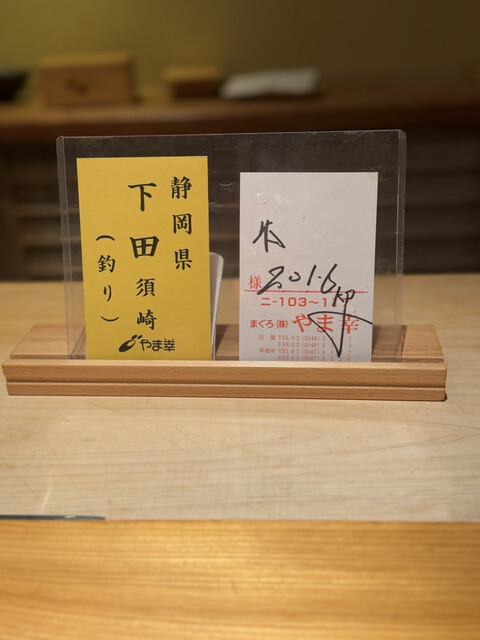 静岡県
下田須崎
(釣り)
やま幸
本
様
201.6kg
ニ-103~1
まぐろ(株)やま幸